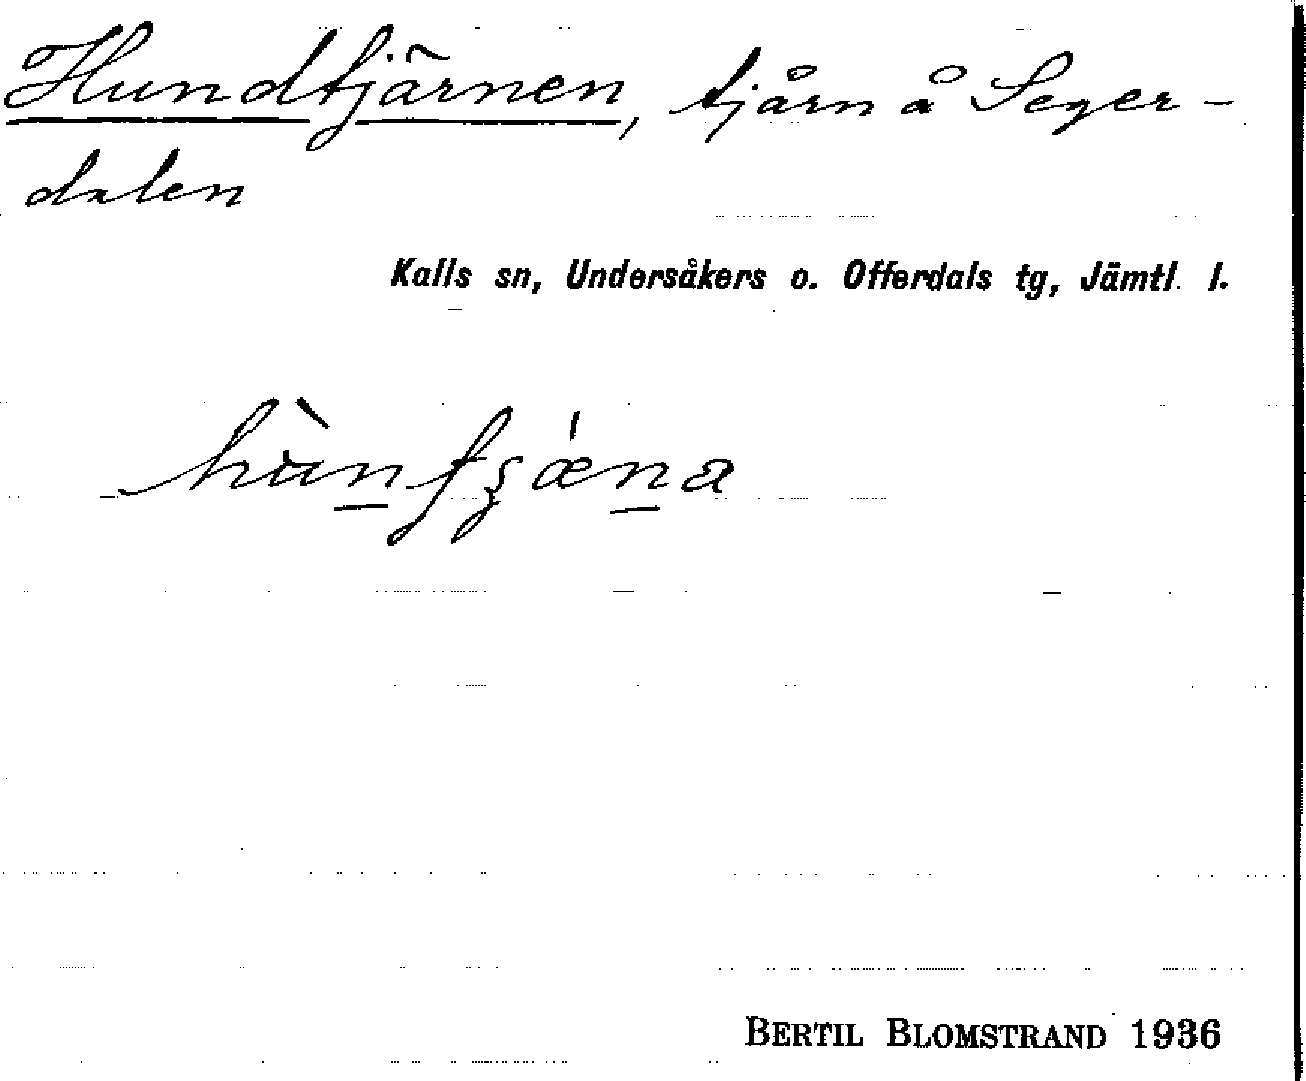 Hundtjärnen, tjärn å Seger-
dalen
Kalls sn, Undersåkers o. Offerdals tg, Jämtl. l.
BERTIL BLOMSTRAND 1936